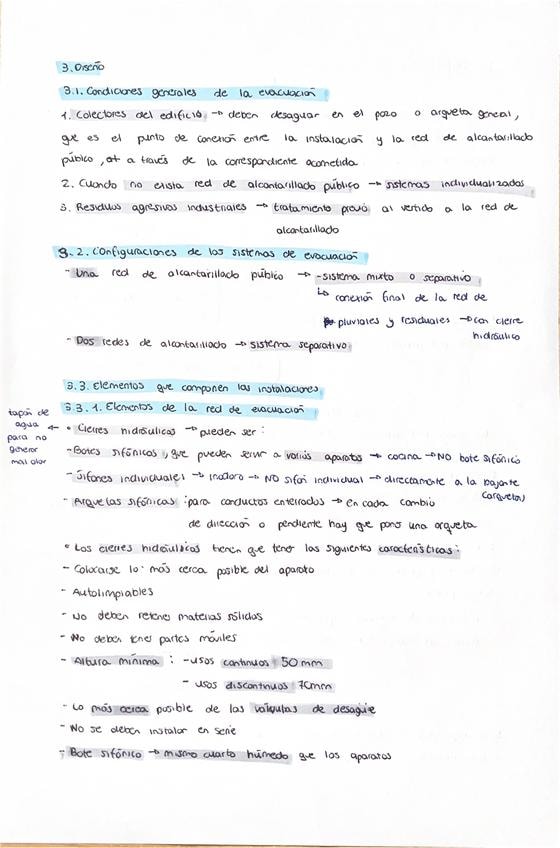 3. Diseño
3.1. Condiciones generales de la evacuación
1. Colectores del edificio → deben desaguar en el pozo o arqueta general,
que es el punto de conexión entre la instalación y la red de alcantarillado
público, a través de la correspondiente acometida
2. Cuando no exista red de alcantarillado público → sistemas individualizados
3. Residuos agresivos industriales → tratamiento previo al vertido a la red de
alcantarillado
3.2. Configuraciones de los sistemas de evacuación
- Una red de alcantarillado público → - sistema mixto o separativo
↳ conexión final de la red de
pluviales y residuales → con cierre
hidráulico
- Dos redes de alcantarillado → sistema separativo
3.3. Elementos que componen las instalaciones
3.3.1. Elementos de la red de evacuación
tapón de
agua ←
para no
generar
mal olor
• Cierres hidráulicos → pueden ser:
- Botes sifónicos, que pueden servir a varios aparatos → cocina → NO bote sifónico
- Sifones individuales → inodoro → NO sifón individual → directamente a la bajante
(arquetas)
- Arquetas sifónicas: para conductos enterrados → en cada cambio
de dirección o pendiente hay que poner una arqueta
• Los cierres hidráulicos tienen que tener las siguientes características:
- Colocarse lo más cerca posible del aparato
- Autolimpiables
- No deben retener materias sólidas
- No deben tener partes móviles
- Altura mínima: - usos continuos 50 mm
- usos discontinuos 70mm
- Lo más cerca posible de las válvulas de desagüe
- No se deben instalar en serie
- Bote sifónico → mismo cuarto húmedo que los aparatos